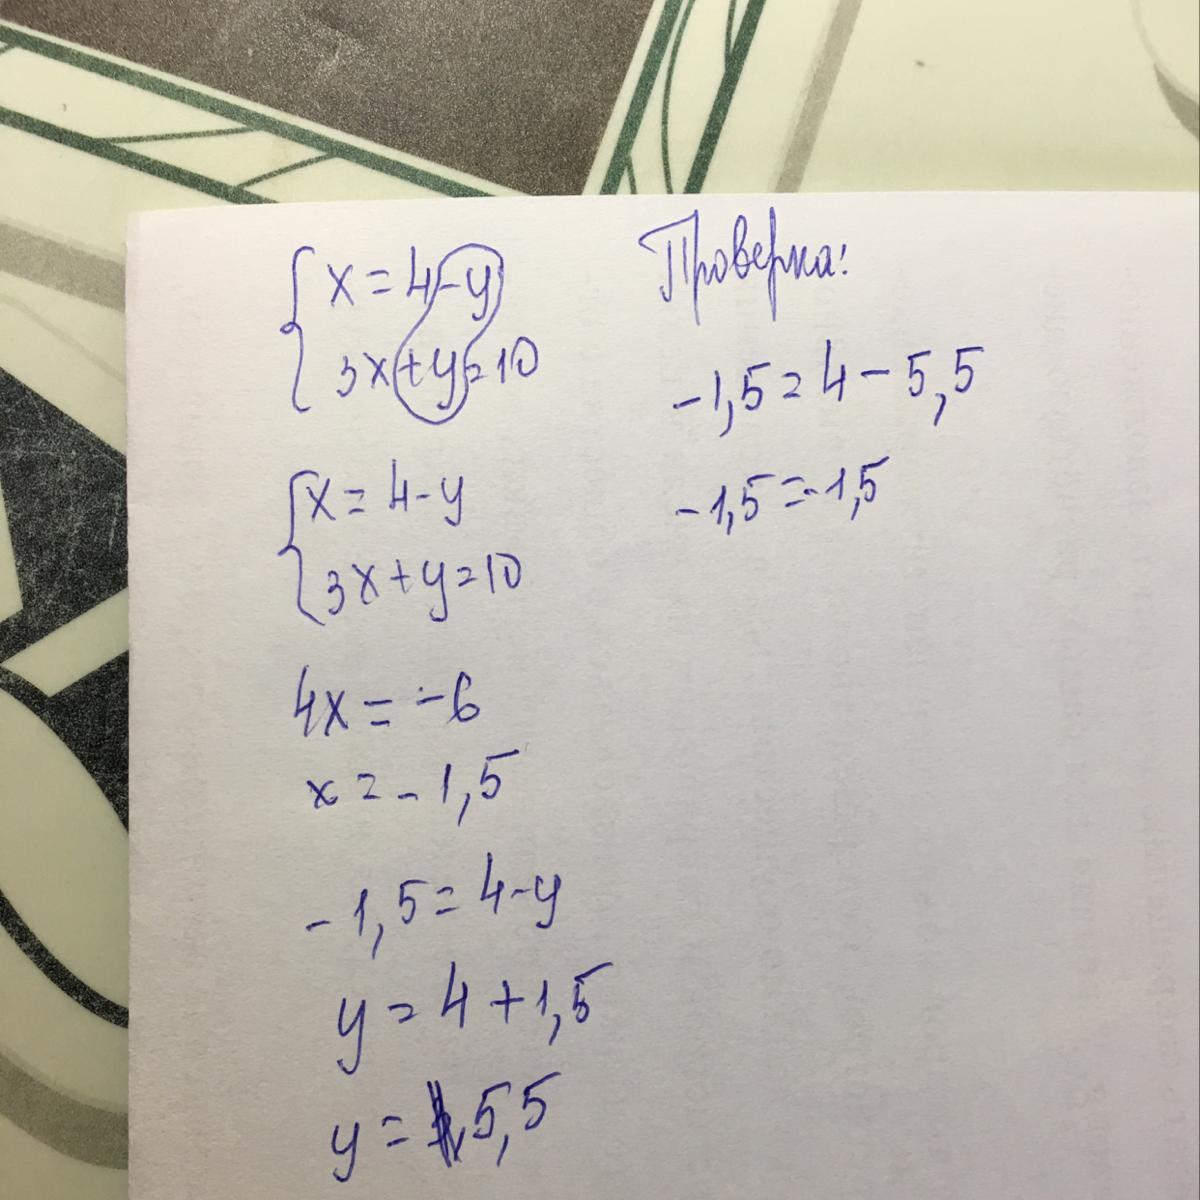 x = 4 - y
3x + y = 10
x = 4 - y
3x + y = 10
4x = -6
x = -1,5
-1,5 = 4 - y
y = 4 + 1,5
y = 5,5
Проверка:
-1,5 = 4 - 5,5
-1,5 = -1,5